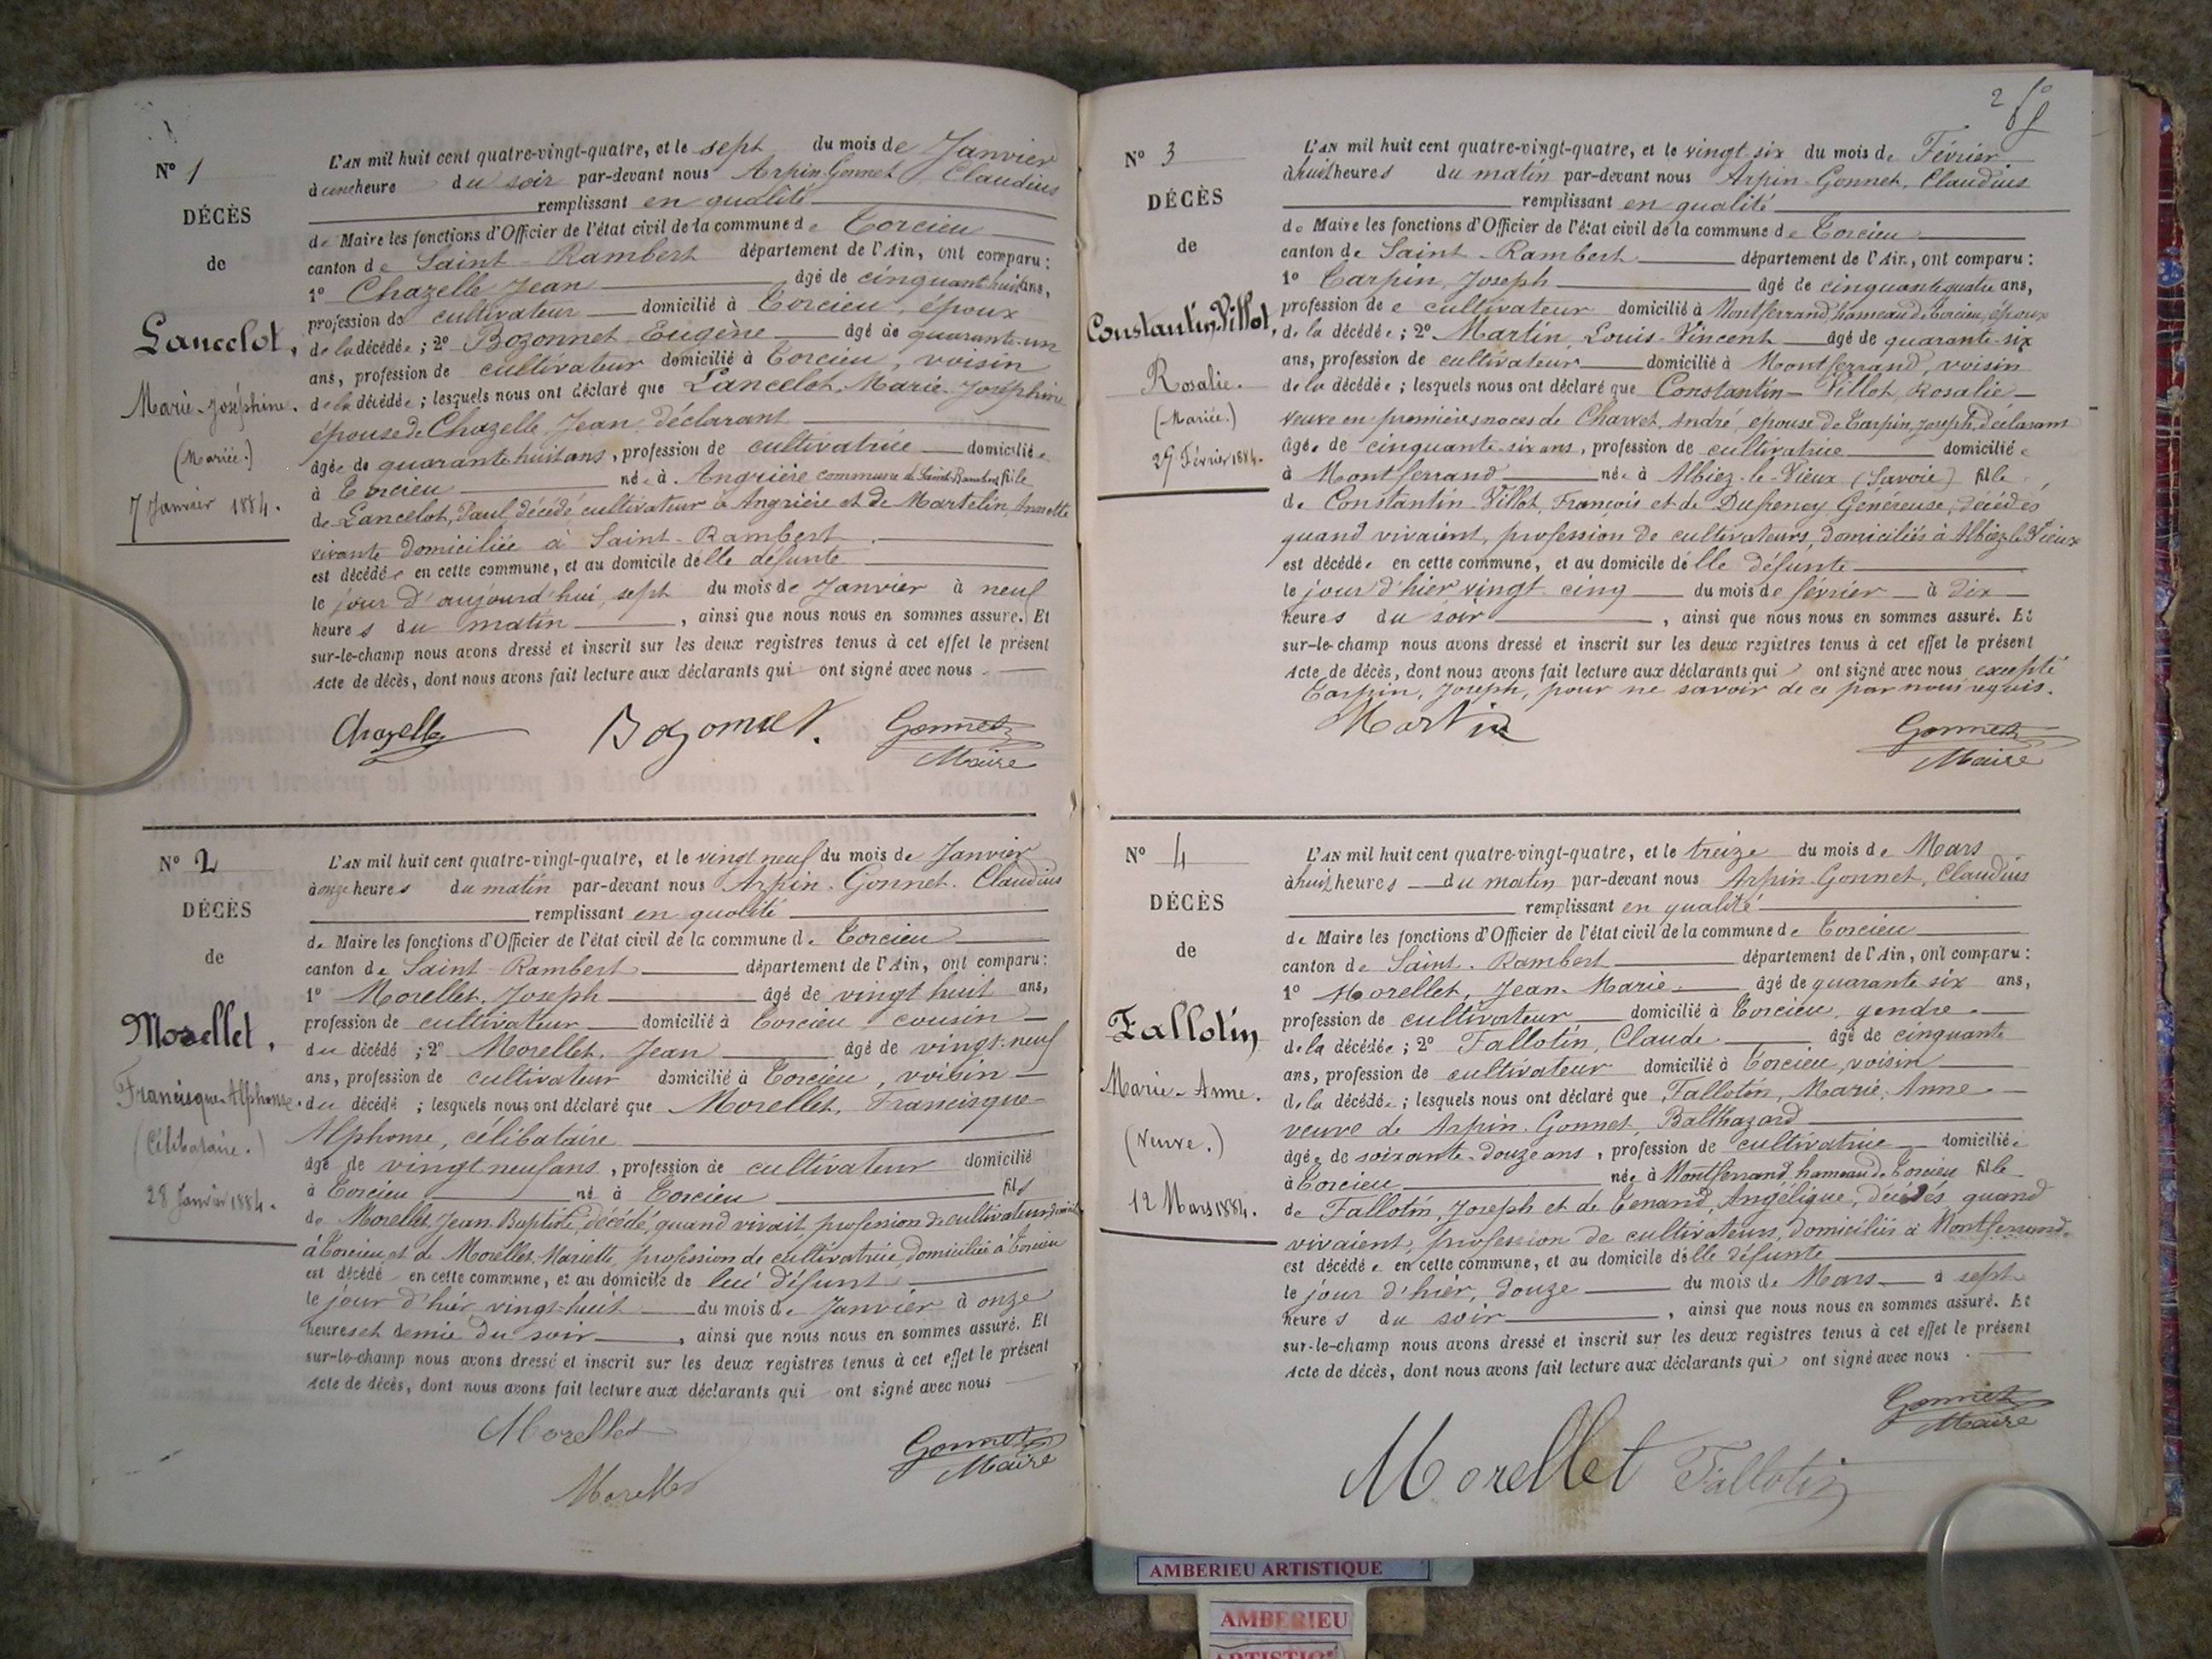 N° 1
DÉCÈS
de
Lancelot,
Marie-Joséphine.
(Mariée.)
7 Janvier 1884.
L'AN mil huit cent quatre-vingt-quatre, et le sept du mois de Janvier
à une heure du soir par-devant nous Arpin-Gonnet Claudius
remplissant en qualité
de Maire les fonctions d'Officier de l'état civil de la commune de Torcieu
canton de Saint-Rambert département de l'Ain, ont comparu:
1° Chazelle Jean âgé de cinquante huit ans,
profession de cultivateur domicilié à Torcieu, époux
de la décédée; 2° Bozonnet Eugène âgé de quarante-un
ans, profession de cultivateur domicilié à Torcieu, voisin
de la décédée; lesquels nous ont déclaré que Lancelot, Marie-Joséphine
épouse de Chazelle Jean, déclarant
âgée de quarante huit ans, profession de cultivatrice domiciliée
à Torcieu née à Angrière commune de Saint-Rambert fille
de Lancelot, Paul, décédé, cultivateur à Angrière et de Martelin, Annette
vivante domiciliée à Saint-Rambert.
est décédée en cette commune, et au domicile de lle défunte
le jour d'aujourd'hui, sept du mois de Janvier à neuf
heures du matin, ainsi que nous nous en sommes assuré. Et
sur-le-champ nous avons dressé et inscrit sur les deux registres tenus à cet effet le présent
Acte de décès, dont nous avons fait lecture aux déclarants qui ont signé avec nous.
Chazelle Bozonnet. Gonnet
Maire
N° 2
DÉCÈS
de
Morellet,
Francisque-Alphonse.
(Célibataire.)
28 Janvier 1884.
L'AN mil huit cent quatre-vingt-quatre, et le vingt neuf du mois de Janvier
à onze heures du matin par-devant nous Arpin-Gonnet. Claudius
remplissant en qualité
de Maire les fonctions d'Officier de l'état civil de la commune de Torcieu
canton de Saint-Rambert département de l'Ain, ont comparu:
1° Morellet, Joseph âgé de vingt huit ans,
profession de cultivateur domicilié à Torcieu cousin
du décédé; 2° Morellet, Jean âgé de vingt-neuf
ans, profession de cultivateur domicilié à Torcieu, voisin
du décédé; lesquels nous ont déclaré que Morellet, Francisque-
Alphonse, célibataire
âgé de vingt neuf ans, profession de cultivateur domicilié
à Torcieu né à Torcieu fils
de Morellet, Jean Baptiste, décédé, quand vivait, profession de cultivateur domicilié
à Torcieu et de Morellet Mariette, profession de cultivatrice, domiciliée à Torcieu
est décédé en cette commune, et au domicile de lui défunt
le jour d'hier vingt-huit du mois de Janvier à onze
heures et demie du soir, ainsi que nous nous en sommes assuré. Et
sur-le-champ nous avons dressé et inscrit sur les deux registres tenus à cet effet le présent
Acte de décès, dont nous avons fait lecture aux déclarants qui ont signé avec nous
Morellet Gonnet
Maire
Morellet
2
N° 3
DÉCÈS
de
Constantin-Villot,
Rosalie.
(Mariée.)
25 Février 1884.
L'AN mil huit cent quatre-vingt-quatre, et le vingt six du mois de Février
à huit heures du matin par-devant nous Arpin-Gonnet, Claudius
remplissant en qualité
de Maire les fonctions d'Officier de l'état civil de la commune de Torcieu
canton de Saint-Rambert département de l'Ain, ont comparu:
1° Tarpin, Joseph âgé de cinquante quatre ans,
profession de cultivateur domicilié à Montferrand, hameau de Torcieu, époux
de la décédée; 2° Martin, Louis-Vincent âgé de quarante-six
ans, profession de cultivateur domicilié à Montferrand, voisin
de la décédée; lesquels nous ont déclaré que Constantin-Villot, Rosalie
veuve en premières noces de Charvet, André, épouse de Tarpin, Joseph, déclarant
âgée de cinquante-six ans, profession de cultivatrice domiciliée
à Montferrand née à Albiez-le-Vieux (Savoie) fille
de Constantin-Villot, François et de Dufrenoy, Généreuse, décédés
quand vivaient, profession de cultivateurs, domiciliés à Albiez-le-Vieux
est décédée en cette commune, et au domicile de lle défunte
le jour d'hier vingt-cinq du mois de février à dix
heures du soir, ainsi que nous nous en sommes assuré. Et
sur-le-champ nous avons dressé et inscrit sur les deux registres tenus à cet effet le présent
Acte de décès, dont nous avons fait lecture aux déclarants qui ont signé avec nous, excepté
Tarpin, Joseph, pour ne savoir de ce par nous requis.
Martin Gonnet
Maire
N° 4
DÉCÈS
de
Fallotin
Marie-Anne.
(Veuve.)
12 Mars 1884.
L'AN mil huit cent quatre-vingt-quatre, et le treize du mois de Mars
à huit heures du matin par-devant nous Arpin-Gonnet, Claudius
remplissant en qualité
de Maire les fonctions d'Officier de l'état civil de la commune de Torcieu
canton de Saint-Rambert département de l'Ain, ont comparu:
1° Morellet, Jean-Marie âgé de quarante six ans,
profession de cultivateur domicilié à Torcieu, gendre
de la décédée; 2° Fallotin, Claude âgé de cinquante
ans, profession de cultivateur domicilié à Torcieu, voisin
de la décédée; lesquels nous ont déclaré que Fallotin, Marie-Anne
veuve de Arpin-Gonnet, Balthazard
âgée de soixante-douze ans, profession de cultivatrice domiciliée
à Torcieu née à Montferrand, hameau de Torcieu fille
de Fallotin, Joseph et de Tenand, Angélique, décédés, quand
vivaient, profession de cultivateurs, domiciliés à Montferrand
est décédée en cette commune, et au domicile de lle défunte
le jour d'hier, douze du mois de Mars à sept
heures du soir, ainsi que nous nous en sommes assuré. Et
sur-le-champ nous avons dressé et inscrit sur les deux registres tenus à cet effet le présent
Acte de décès, dont nous avons fait lecture aux déclarants qui ont signé avec nous.
Gonnet
Maire
Morellet Fallotin
AMBERIEU ARTISTIQUE
AMBERIEU
ARTISTIQUE